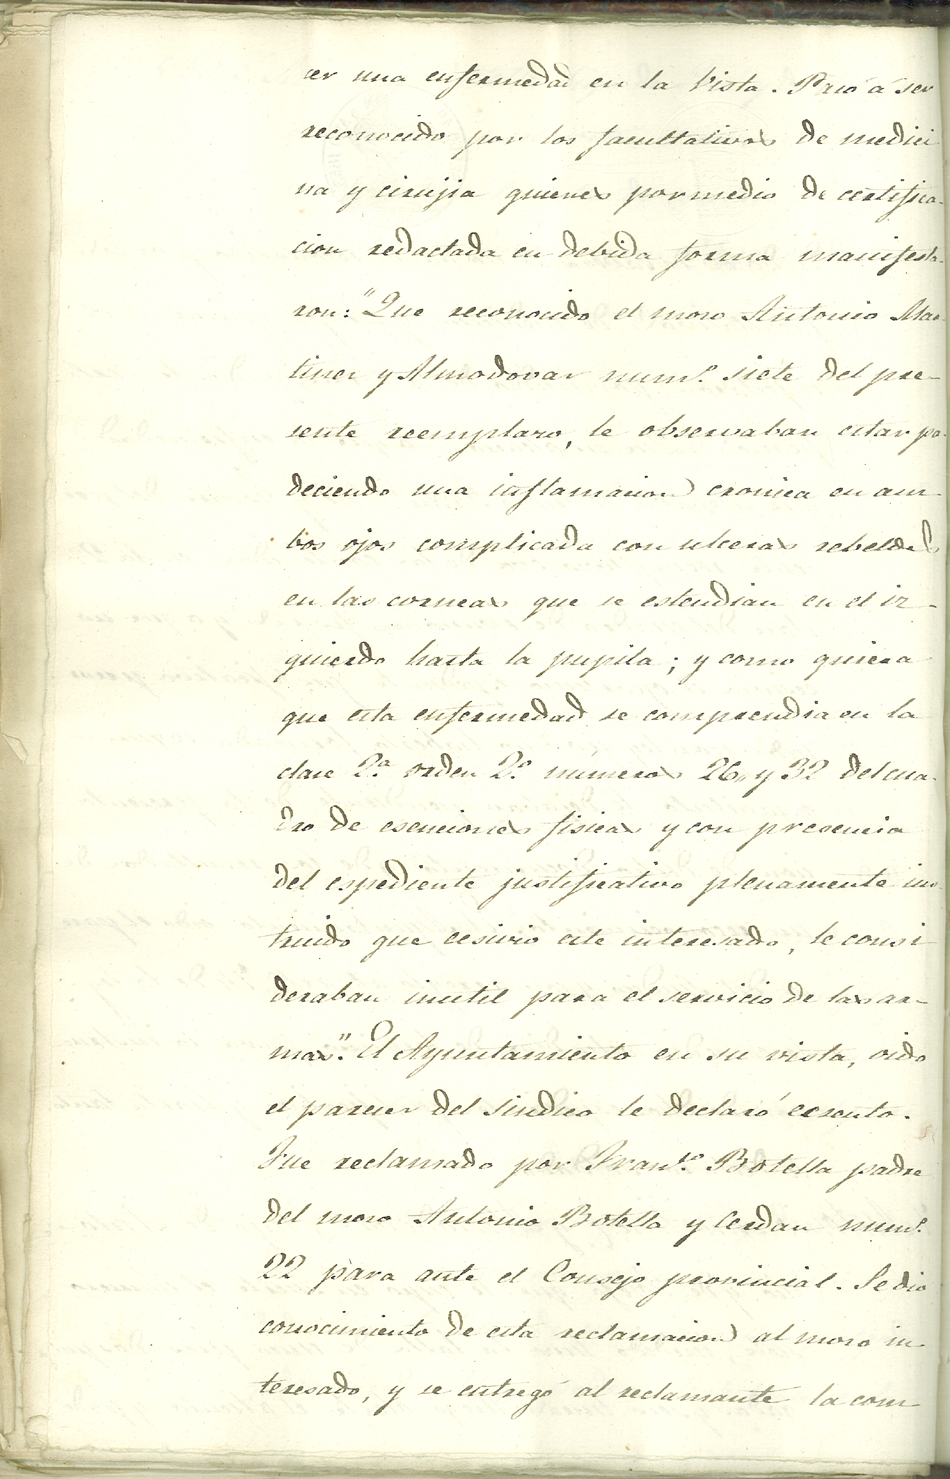 cer una enfermedad en la vista. Pasó á ser
reconocido por los facultativos de medici
na y cirujia quienes por medio de certifica-
cion redactada en debida forma manifesta-
ron: "Que reconocido el mozo Antonio Mar-
tinez y Almodovar num.º siete del pre-
sente reemplazo, le observaban estar pa-
deciendo una inflamacion cronica en am-
bos ojos complicada con ulceras rebeldes
en las corneas que se estendian en el iz-
quierdo hasta la pupila; y como quiera
que esta enfermedad se comprendia en la
clase 2.ª orden 2.º numeros 26, y 32 del cua-
dro de esenciones fisicas y con presencia
del espediente justificativo plenamente ins-
truido que ecsivio este interesado, le consi
deraban inutil para el servicio de las ar-
mas". El Ayuntamiento en su vista, oido
el parecer del Sindico le declaró ecsento.
Fue reclamado por Fran.co Botella padre
del mozo Antonio Botella y Cerdan num.º
22 para ante el Consejo provincial. Se dio
conocimiento de esta reclamacion al mozo in-
teresado, y se entregó al reclamante la com-